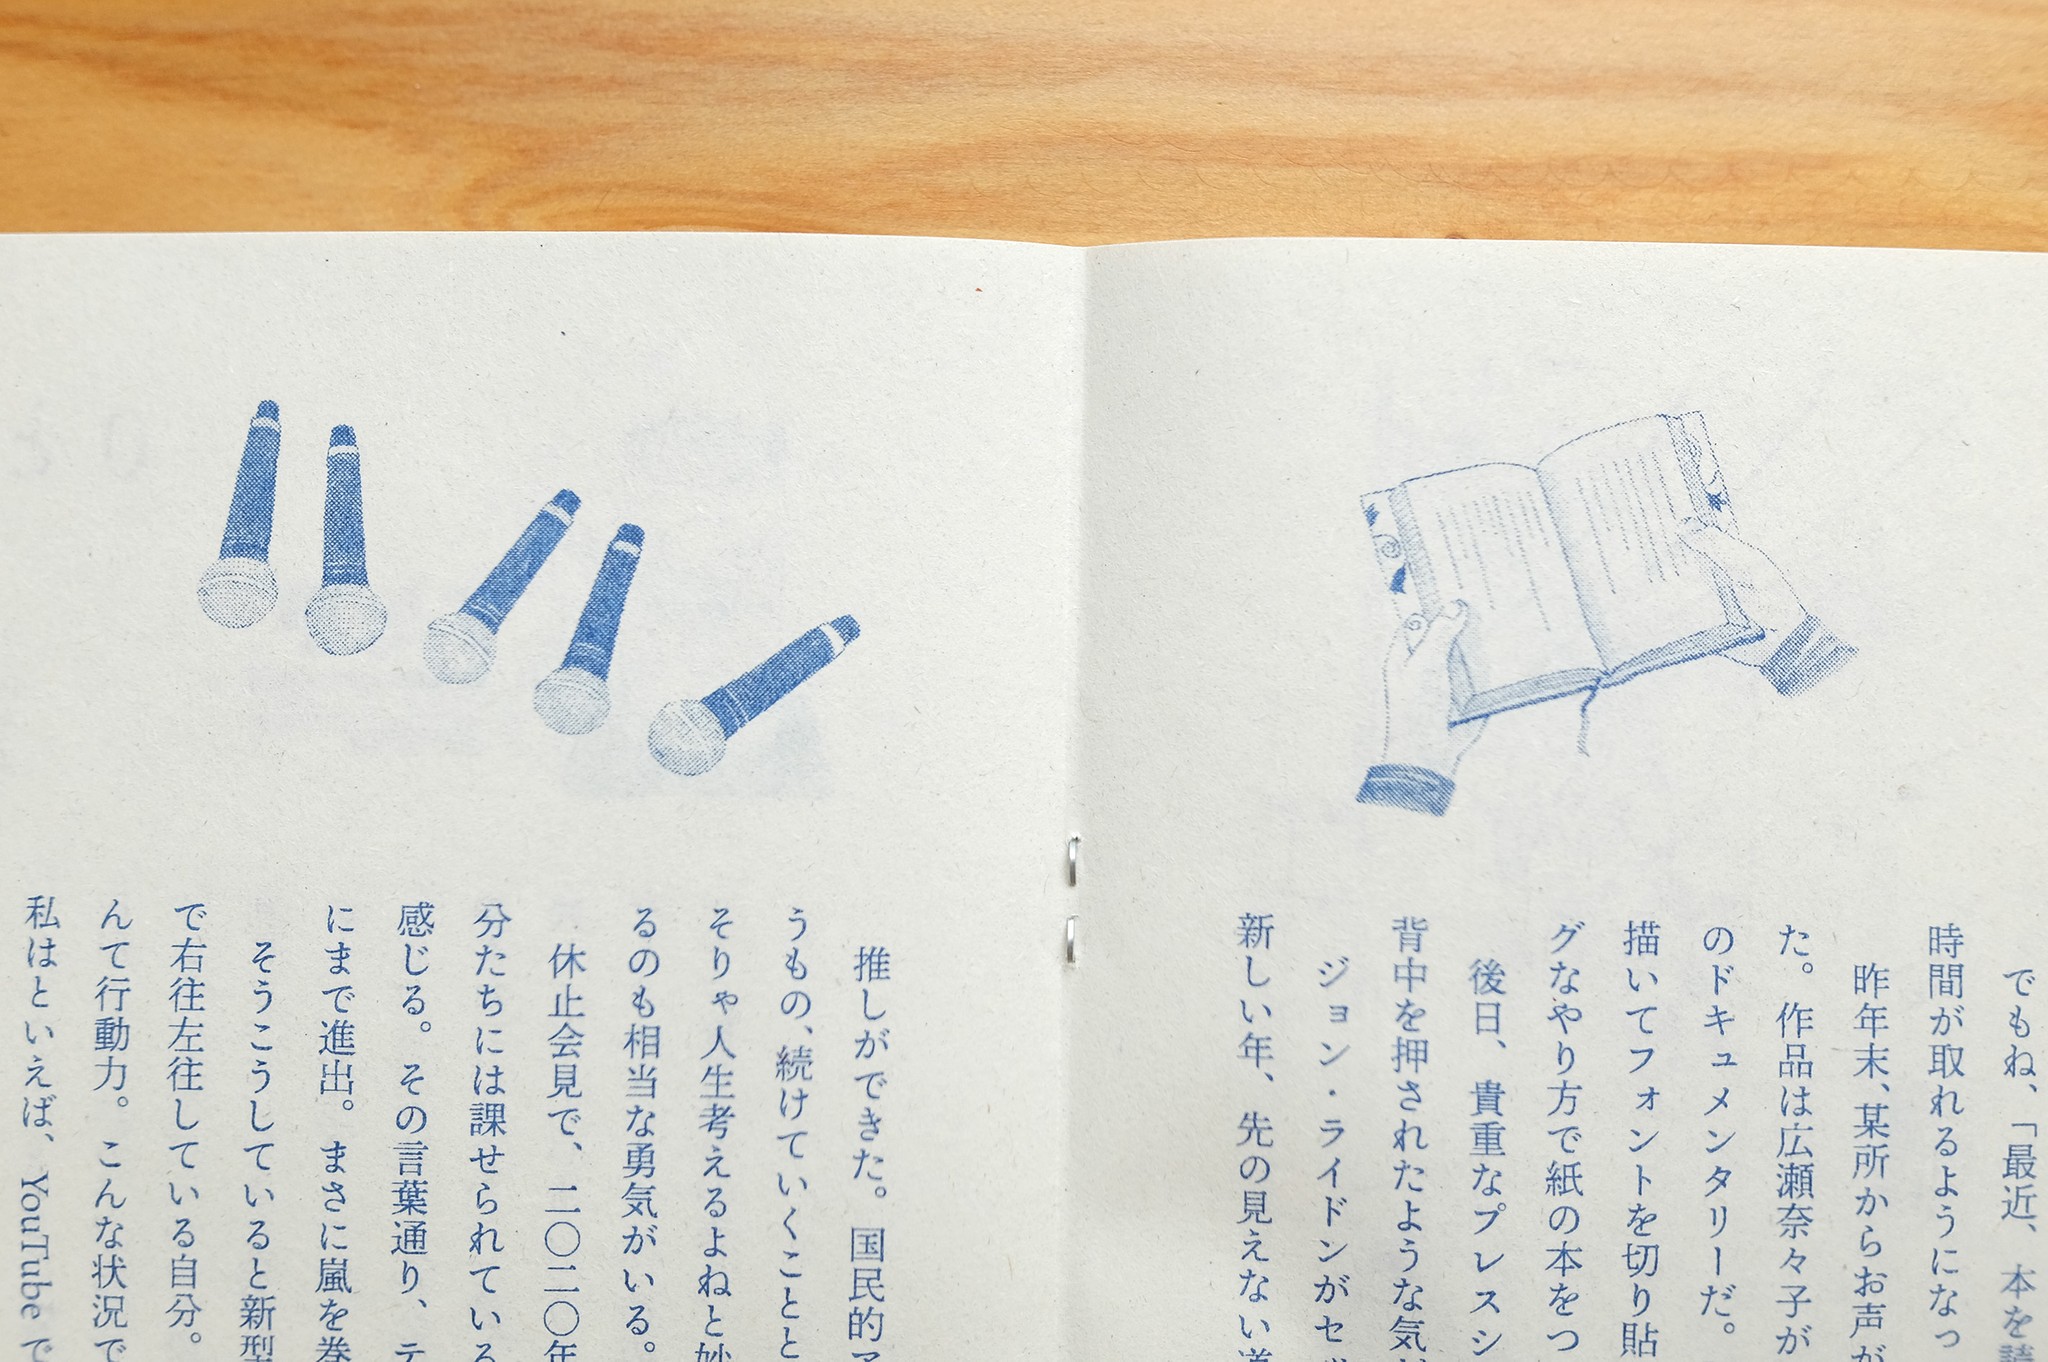 でもね、「最近、本を読
時間が取れるようになっ
昨年末、某所からお声が
た。作品は広瀬奈々子が
のドキュメンタリーだ。
描いてフォントを切り貼
グなやり方で紙の本をつ
後日、貴重なプレスシ
背中を押されたような気が
ジョン・ライドンがセッ
新しい年、先の見えない道
推しができた。国民的ア
うもの、続けていくことと
そりゃ人生考えるよねと妙
るのも相当な勇気がいる。
休止会見で、二〇二〇年
分たちには課せられている
感じる。その言葉通り、テ
にまで進出。まさに嵐を巻
そうこうしていると新型
で右往左往している自分。
んて行動力。こんな状況で
私はといえば、YouTubeで